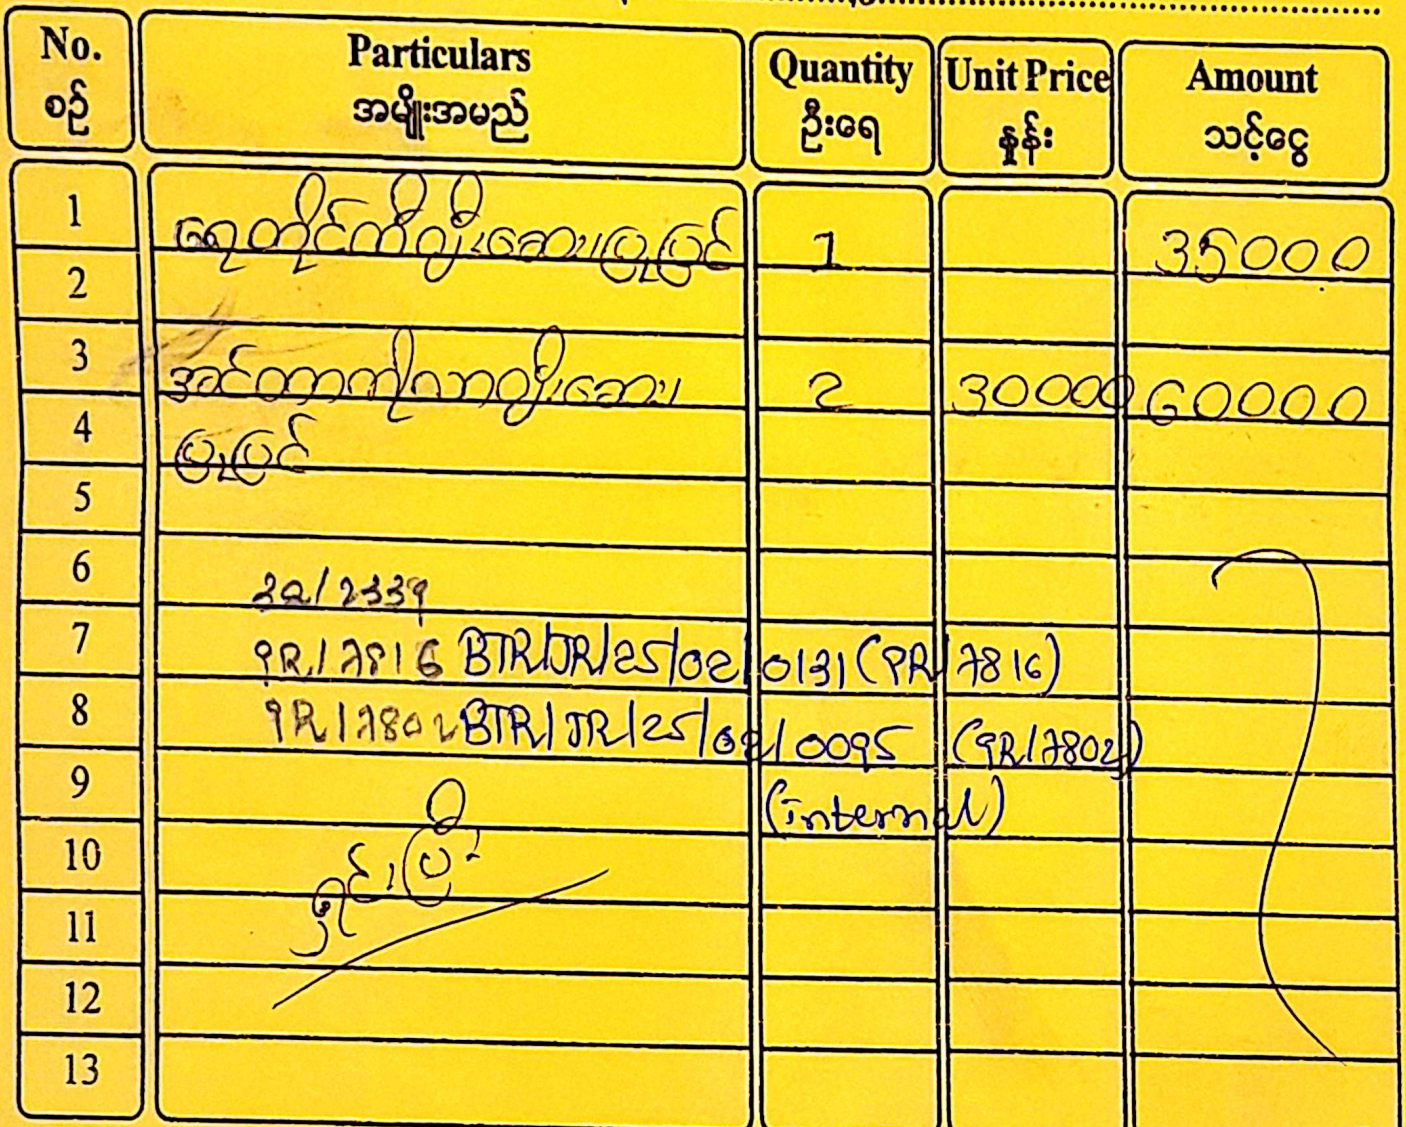 No. Particulars Quantity Unit Price Amount
စဉ် အမျိုးအမည် ဦးရေ နှုန်း သင့်ငွေ
1 ရေတိုင်ကီလျှီးဆေးပြုပြင် 1 35000
2
3 အင်တာကူလာလျှီးဆေး 2 30000 60000
4 ပြုပြင်
5
6 2Q/2339
7 PR/7816 BTR/JR/25/02/0131 (PR/7816)
8 PR/7802 BTR/JR/25/02/0095 (PR/7802)
9 (internal)
10 ရှင်းပြီး
11
12
13